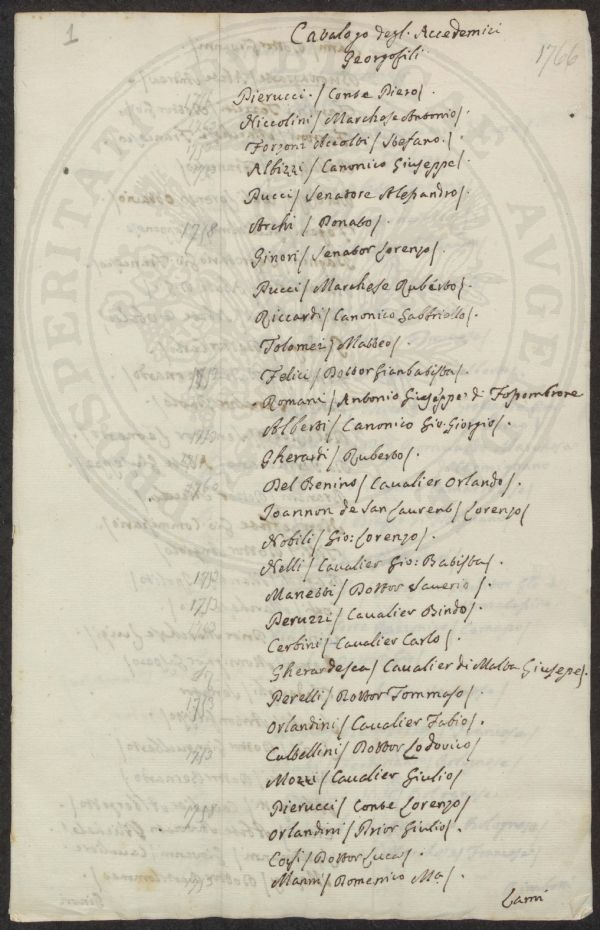 1
Catalogo degl. Accademici
Georgofili
1766
Pierucci / Conte Piero /.
Niccolini / Marchese Antonio /.
Forzoni Accolti / Stefano /.
Albizzi / Canonico Giuseppe /.
Pucci / Senatore Alessandro /.
1758 Archi / Donato /.
Ginori / Senator Lorenzo /.
Pucci / Marchese Ruberto /.
Riccardi / Canonico Gabbriello /.
Tolomei / Matteo /.
1753 Felici / Dottor Gianbatista /.
Romani / Antonio Giuseppe di Fossombrone
Alberti / Canonico Gio: Giorgio /.
Gherardi / Ruberto /.
1760 Del Benino / Cavalier Orlando /.
Joannon de San Laurent / Lorenzo /
Nobili / Gio: Lorenzo /.
Nelli / Cavalier Gio: Batista /.
1753 Manetti / Dottor Saverio /.
1753 Peruzzi / Cavalier Bindo /.
Cerbini / Cavalier Carlo /.
Gherardesca / Cavalier di Malta Giusepe /.
1753 Perelli / Dottor Tommaso /.
Orlandini / Cavalier Fabio /.
1753 Cultellini / Dottor Lodovico /
Mozzi / Cavalier Giulio /
1758 Pierucci / Conte Lorenzo /
Orlandini / Prior Giulio /.
Cosi / Dottor Luca /.
1753 Manni / Domenico Ma /.
Lami
PROSPERITATI AUGENDAE